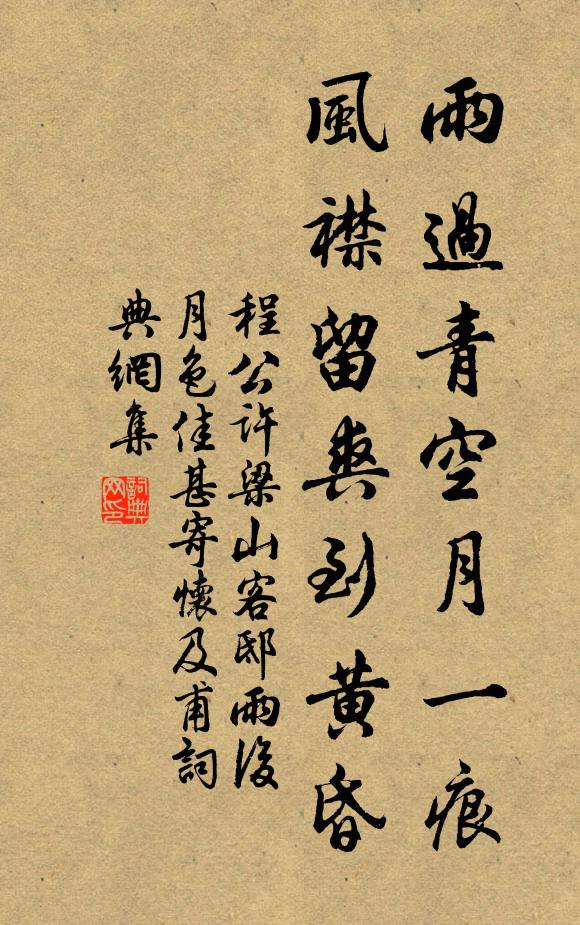 雨過青空月一痕
風襟留爽到黃昏
程公許梁山客邸雨後
月色佳甚寄懷及甫詞
典網集
詞典網印